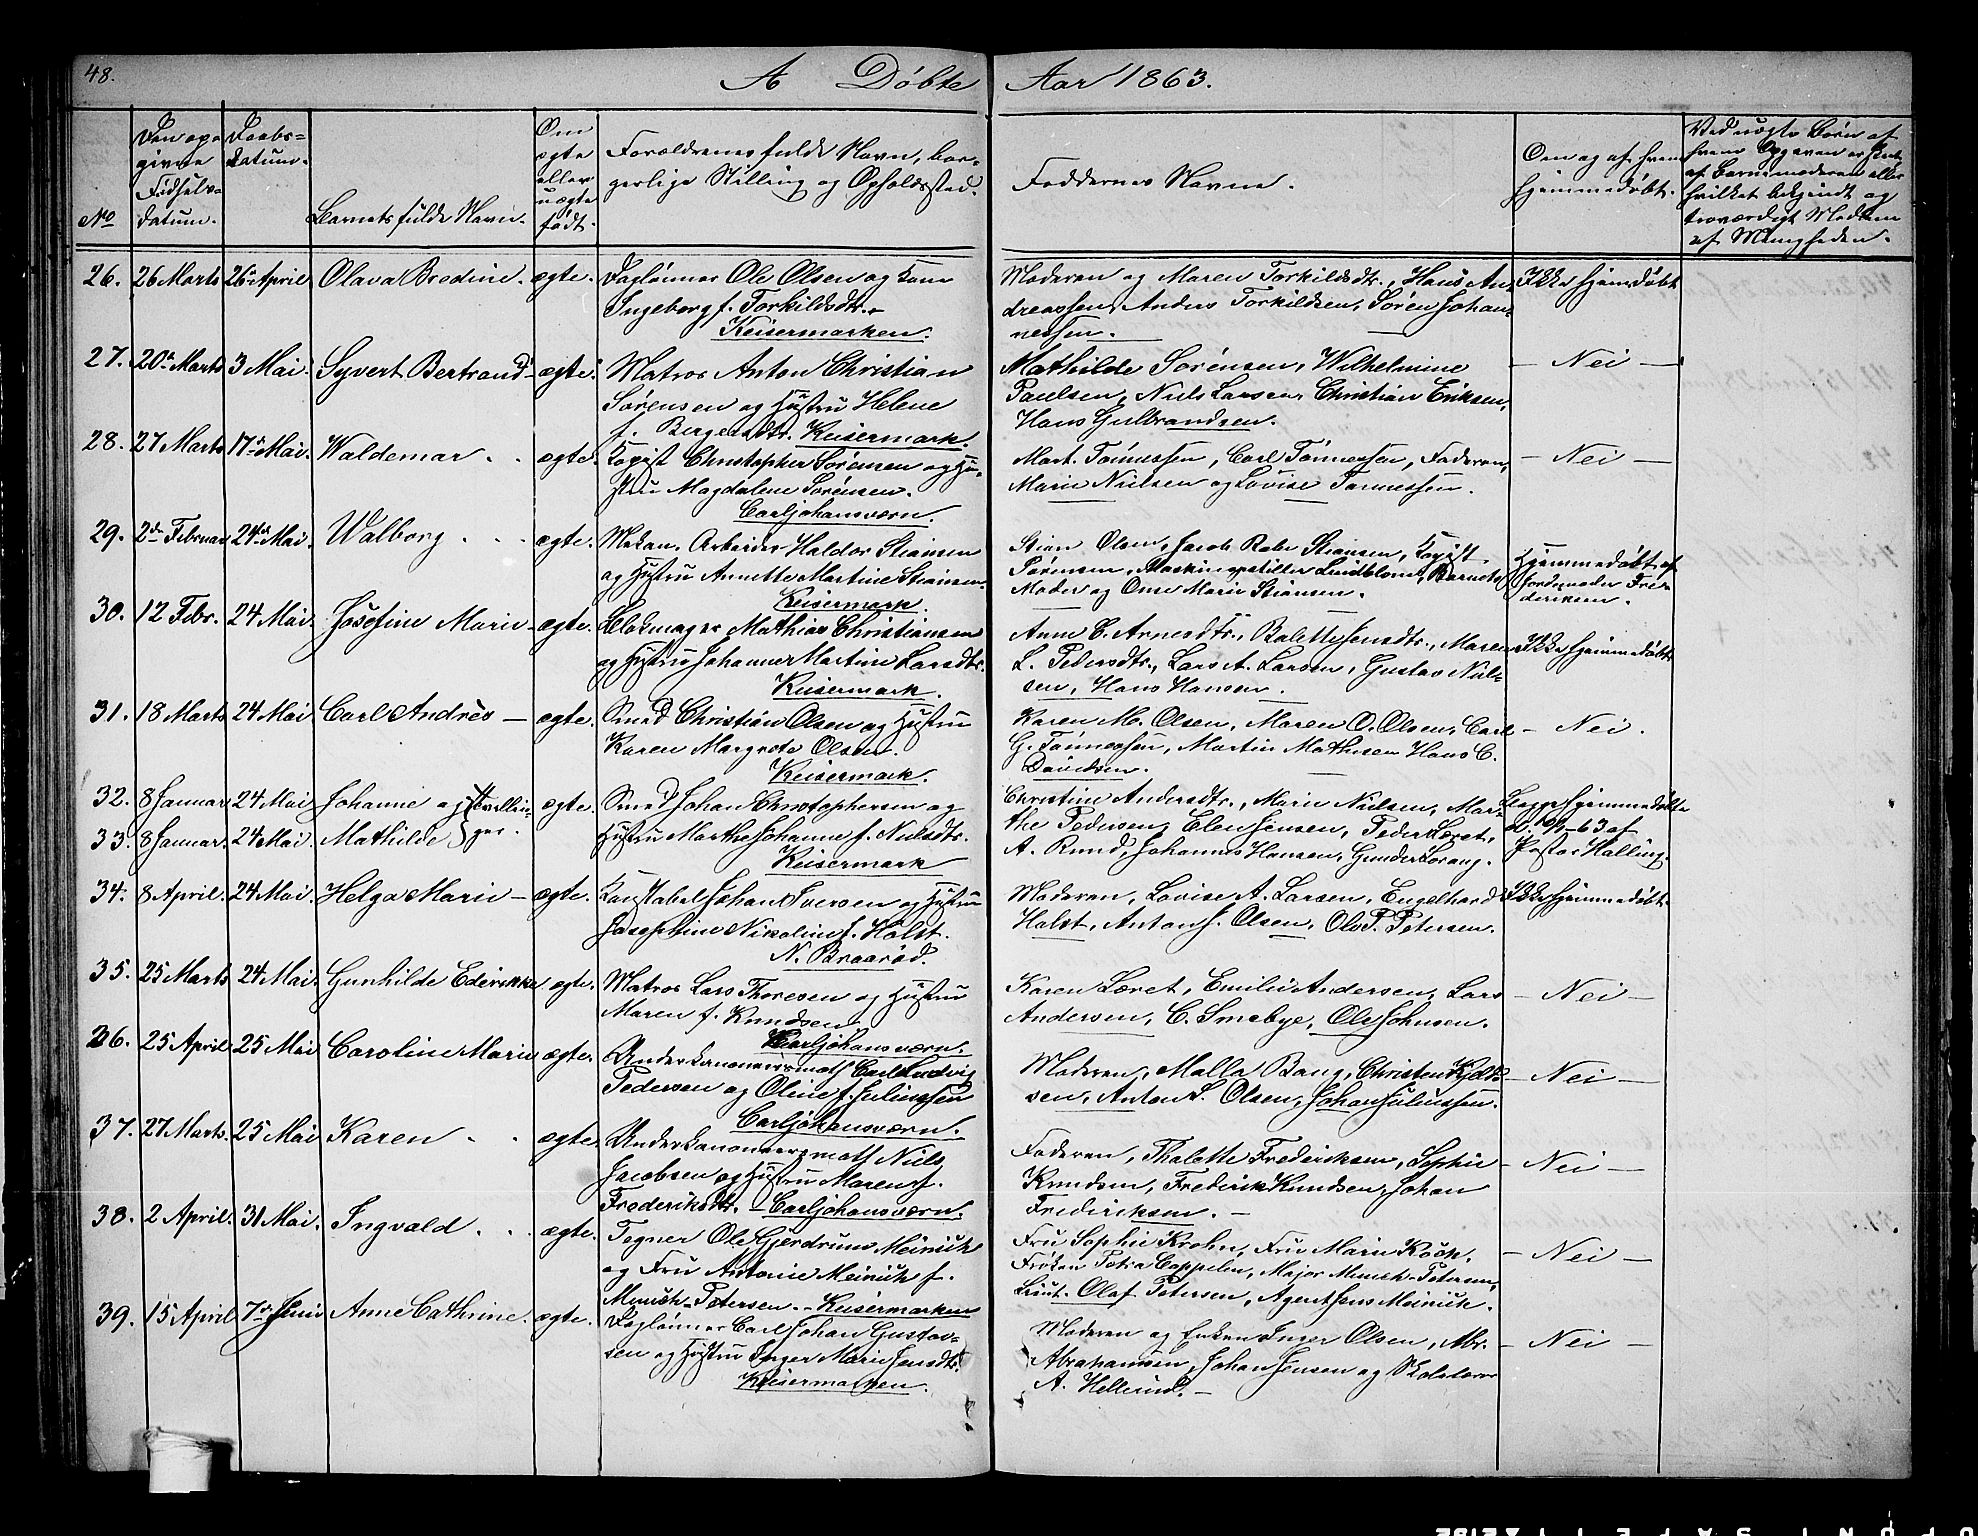 48.
A Døbte Aar 1863.
No
Den opgivne Fødselsdatum.
Daabsdatum.
Barnets fulde Navn.
Om ægte eller uægte født.
Forældrenes fulde Navn, borgerlige Stilling og Opholdssted.
Faddernes Navne.
Om og af hvem hjemmedøbt.
Ved uægte Børn af hvem Opgaven er skeet af Barnemoderen eller hvilket bekjendt og troværdigt Medlem af Menigheden.
26. 26 Marts 26de April Olava Bredine. ægte. Daglønner Ole Olsen og Kone
Ingeborg f. Torkildsdtr.
Keisermarken.
Moderen og Maren Torkildsdtr., Hans An-
dreassen, Anders Torkildsen, Søren Johan-
nessen.
Ikke hjemmedøbt
27. 20de Marts 3 Mai. Syvert Bertrand ægte. Matros Anton Christian
Sørensen og Hustru Helene
f. Bergersdtr. Keisermark.
Mathilde Sørensen, Wilhelmine
Paulsen, Niels Larsen, Christian Eriksen,
Hans Gulbrandsen.
— Nei —
28. 27 Marts 17de Mai. Waldemar ægte. Kopist Christopher Sørensen og Hu-
stru Magdalene Sørensen.
Carljohansværn.
Mart. Tønnessen, Carl Tønnessen, Faderen,
Marie Nielsen og Lovise Tønnessen.
— Nei —
29. 2den Februar 24de Mai. Walborg ægte. Mekan. Arbeider Haldor Stiansen
og Hustru Annette Martine Stiansen.
Keisermark.
Stian Olsen, Jacob Rabe Stiansen, Kopist
Sørensen, Maskinopstiller Lindblom, Barnets
Moder og Onse Marie Stiansen.
Hjemmedøbt af
Jordemoder Fre-
deriksen.
30. 12 Febr. 24 Mai. Josefine Marie ægte. Blokmager Mathias Christiansen
og Hustru Johanne Martine Larsdtr.
Keisermark.
Anne C. Arnesdtr., Balette Jensdtr., Maren
L. Pedersdtr., Lars A. Larsen, Gustav Niel-
sen, Hans Hansen.
Ikke hjemmedøbt
31. 18 Marts 24 Mai Carl Andrès — ægte. Smed Christian Olsen og Hustru
Karen Margrete Olsen.
Keisermark.
Karen M. Olsen, Maren O. Olsen, Carl
G. Tønnessen, Martin Mathisen Hans C.
Davidsen.
— Nei.
32. 8 Januar 24 Mai Johanne og Tvillin- ægte. Smed Johan Christophersen og
33. 8 Januar. 24 Mai. Mathilde ger. Hustru Marthe Johanne f. Nielsdtr.
Keisermark
Christine Andersdtr., Marie Nielsen, Mar-
the Pedersen, Elen Jensen, Peder Læret,
A. Rund, Johannes Hansen, Gunder Lorang.
Begge hjemmedøbte
63 af
Pastor Halling.
34. 8 April. 24 Mai. Helga Marie — ægte. Konstabel Johan Iversen og Hustru
Josephine Nikoline f. Holst.
N. Braarød.
Moderen, Lovise A. Larsen, Engelhard
Holst, Anton J. Olsen, Ole P. Petersen.
Ikke hjemmedøbt.
35. 25 Marts 24 Mai. Gunhilde Ederikke ægte. Matros Lars Thoresen og Hustru
Maren f. Knudsen
Carljohansværn.
Karen Læret, Emilie Andersen, Lars
Andersen, C. Smebye, Ole Johnsen.
— Nei —
36. 25 April 25 Mai Caroline Marie ægte. Underkanoneersmath Carl Ludvig
Pedersen og Oline f. Juliussen
Carljohansværn.
Moderen, Malla Bang, Christen Kjeld-
sen, Anton L. Olsen, Johan Juliussen.
— Nei —
37. 27 Marts. 25 Mai Karen ægte. Underkanoneersmath Niels
Jacobsen og Hustru Maren f.
Frederiksdtr. — Carljohansværn.
Faderen, Thalette Frederiksen, Sophie
Knudsen, Frederik Knudsen, Johan
Frederiksen. —
— Nei —
38. 2 April. 31 Mai. Ingvald ægte. Tegner Ole Gjerdrum Meinich
og Fru Antonie Meinich f.
Munch-Petersen. — Keisermarken
Fru Sophie Krohn, Fru Marie Koch,
Frøken Petra Cappelen, Major Munch-Petersen,
Lieut. Olaf Petersen, Agent Jens Meinich.
— Nei —
39. 15 April 7de Juni Anne Cathrine. ægte. Daglønner Carl Johan Gustav-
sen og Hustru Inger Marie Jensdtr.
Keisermarken.
Moderen og Enken Inger Olsen, Abr.
Abrahamsen, Johan Jensen og Skolelærer
A. Hellerud. —
— Nei —